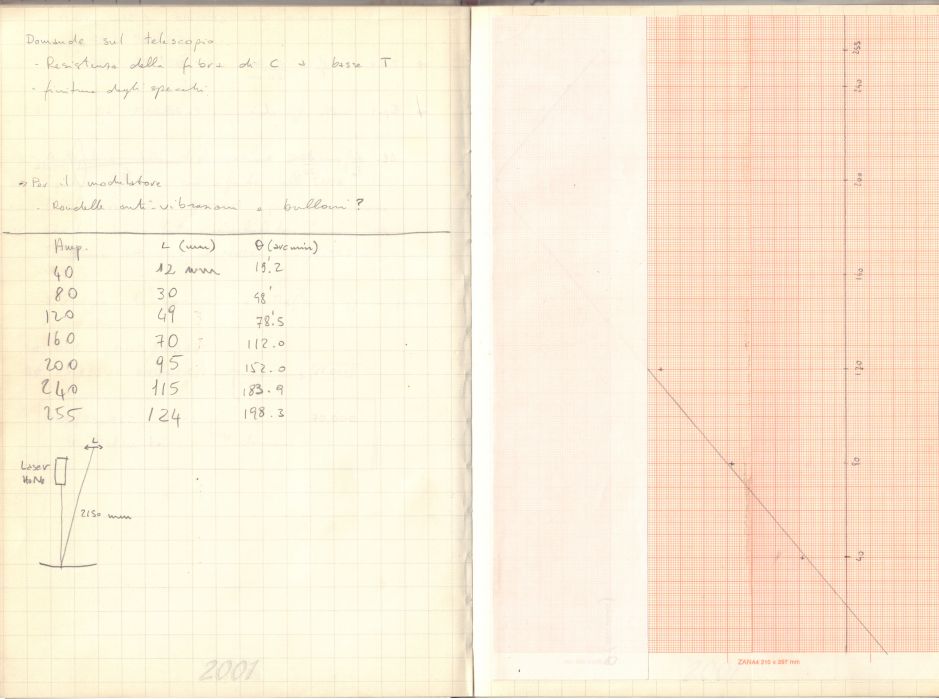 Domande sul telescopio
- Resistenza della fibra di C a basse T
- finitura degli specchi
⇒ Per il modulatore
- Rondelle anti-vibrazioni e bulloni?
Amp. L (mm) θ (arcmin)
40 12 mm 19'.2
80 30 48'
120 49 78'.5
160 70 112.0
200 95 152.0
240 115 183.9
255 124 198.3
L
Laser
HeNe
2150 mm
2001
255
240
200
160
120
80
40
ZANA4 210 x 297 mm